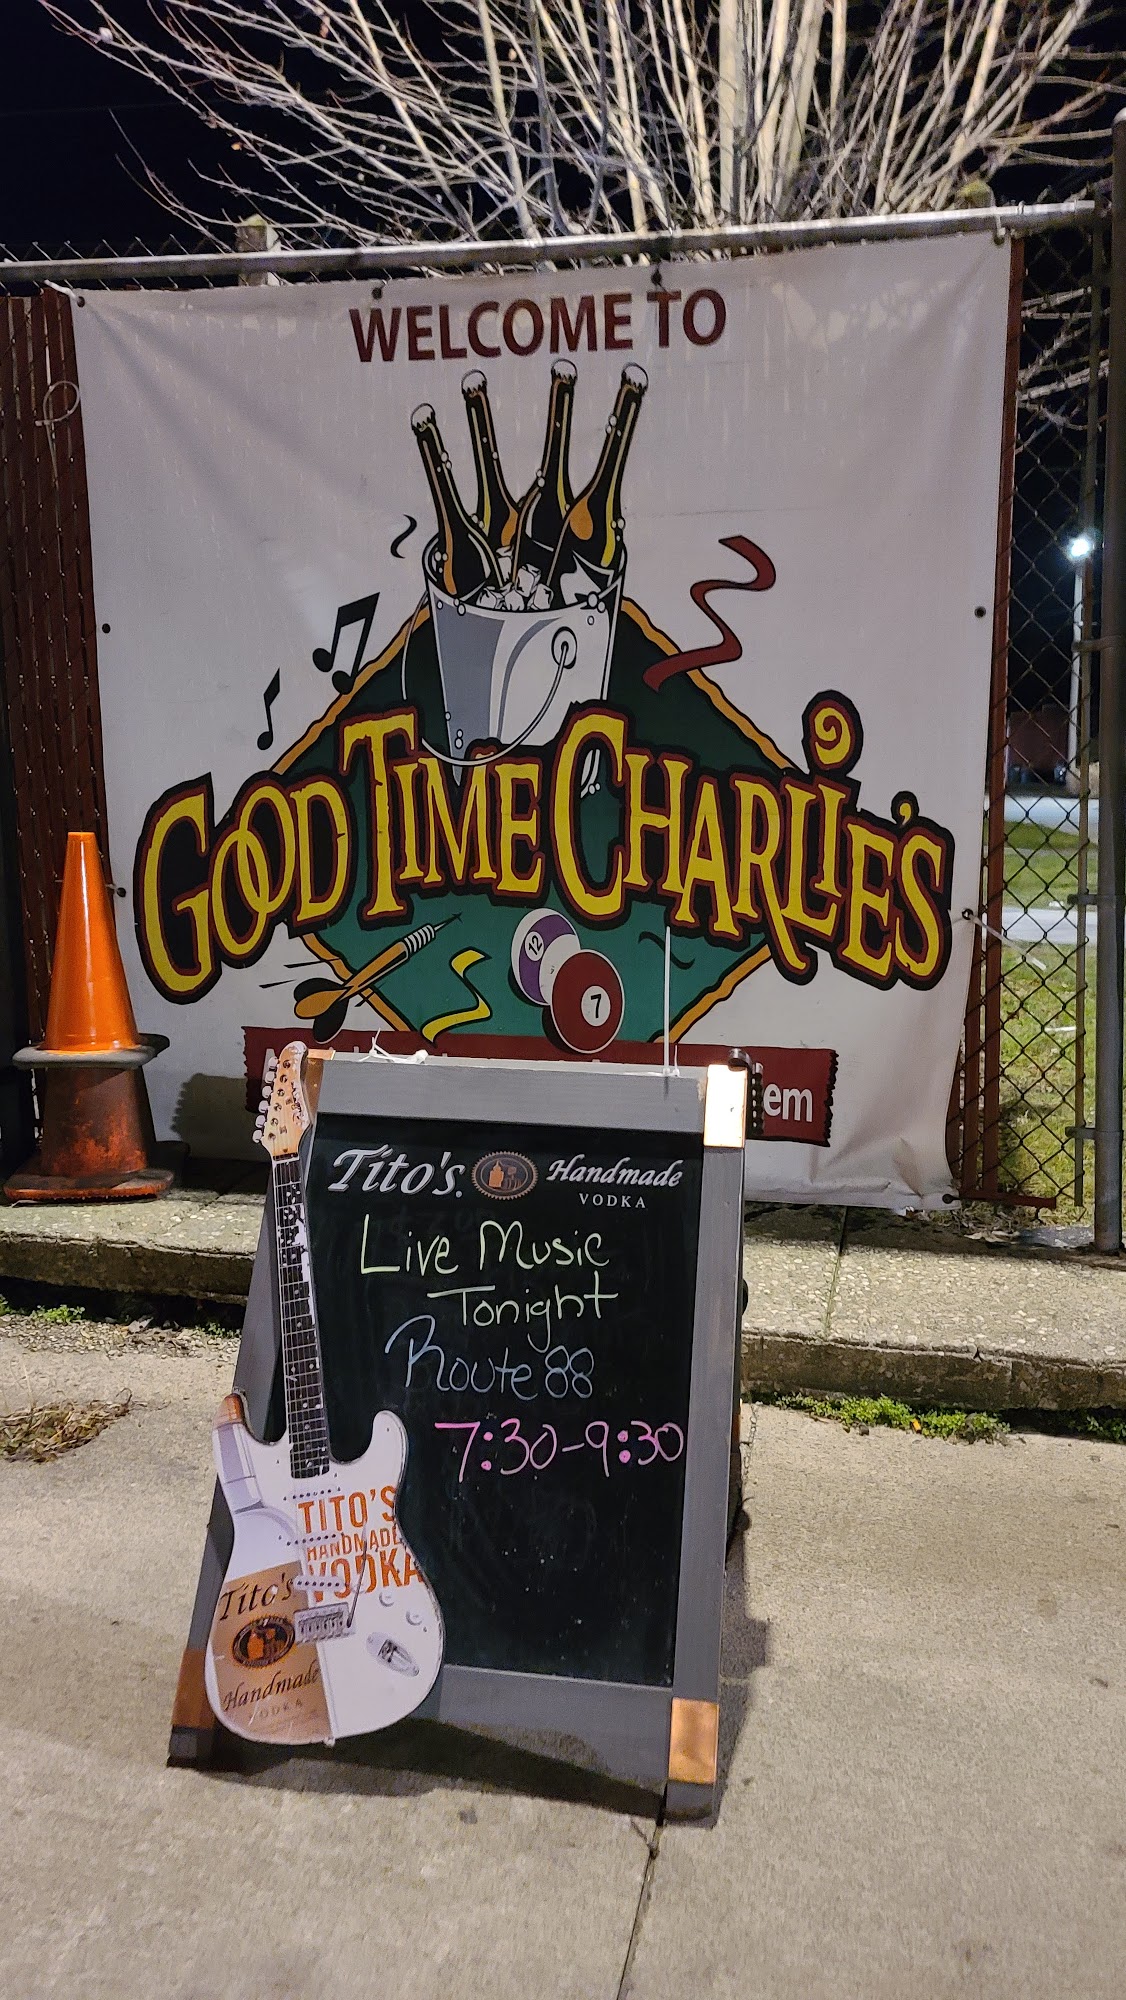 WELCOME TO
GOOD TIME CHARLIE'S
12
7
em
Tito's. Handmade
VODKA
Live Music
Tonight
Route 88
7:30-9:30
TITO'S
HANDMADE
VODKA
Tito's
Handmade
VODKA